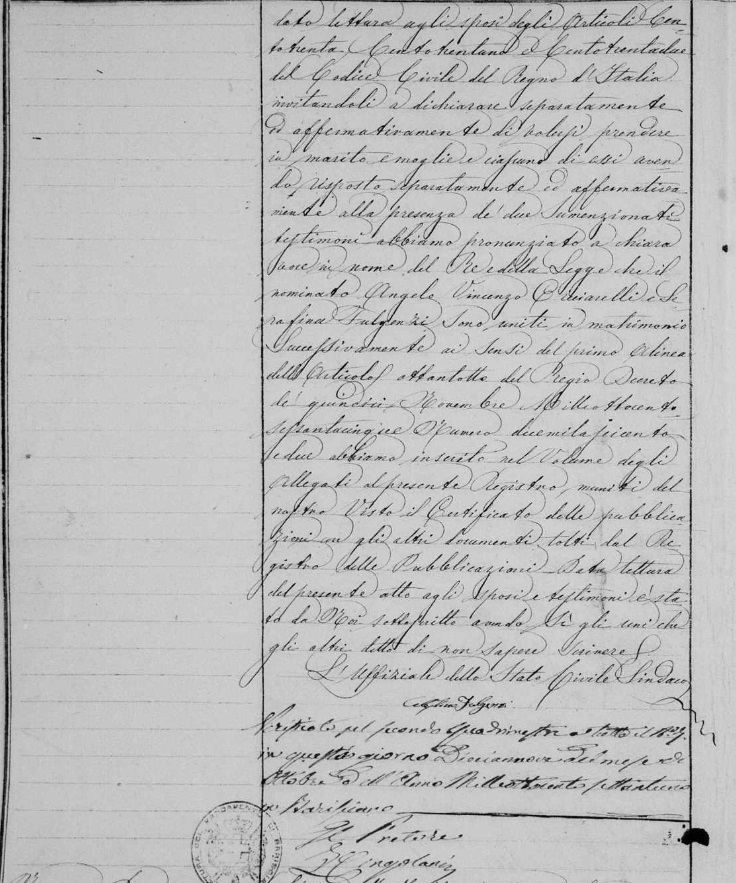 dato lettura agli sposi degli Articoli Cen-
to trenta, Cento trentuno e Cento trentadue
del Codice Civile del Regno d'Italia
invitandoli a dichiarare separatamente
ed affermativamente di volersi prendere
in marito e moglie e ciascuno di essi aven
do risposto separatamente ed affermativa
mente alla presenza de' due sumenzionati
testimoni abbiamo pronunziato a chiara
voce in nome del Re e della Legge che il
nominato Angelo Vincenzo Chiarelli e Se
rafina Fulgenzi sono uniti in matrimonio
Successivamente ai sensi del primo Alinea
dell'Articolo ottantotto del Regio Decreto
de' quindici Novembre Milleottocento
sessantacinque Numero duemilaseicento
e due abbiamo inserito nel Volume degli
Allegati al presente Registro, muniti del
nostro Visto il Certificato delle pubblica
zioni con gli altri documenti tolti dal Re
gistro delle Pubblicazioni. Data lettura
del presente atto agli sposi e testimoni è sta
to da Noi sottoscritto avendo sì gli uni che
gli altri detto di non sapere scrivere
L'Uffiziale dello Stato Civile Sindaco
Verificato pel secondo quadrimestre a tutto il
in questo giorno Diciannove del mese di
Ottobre dell'Anno Milleottocento settantuno
in Barisciano
Il Pretore
Cingolani